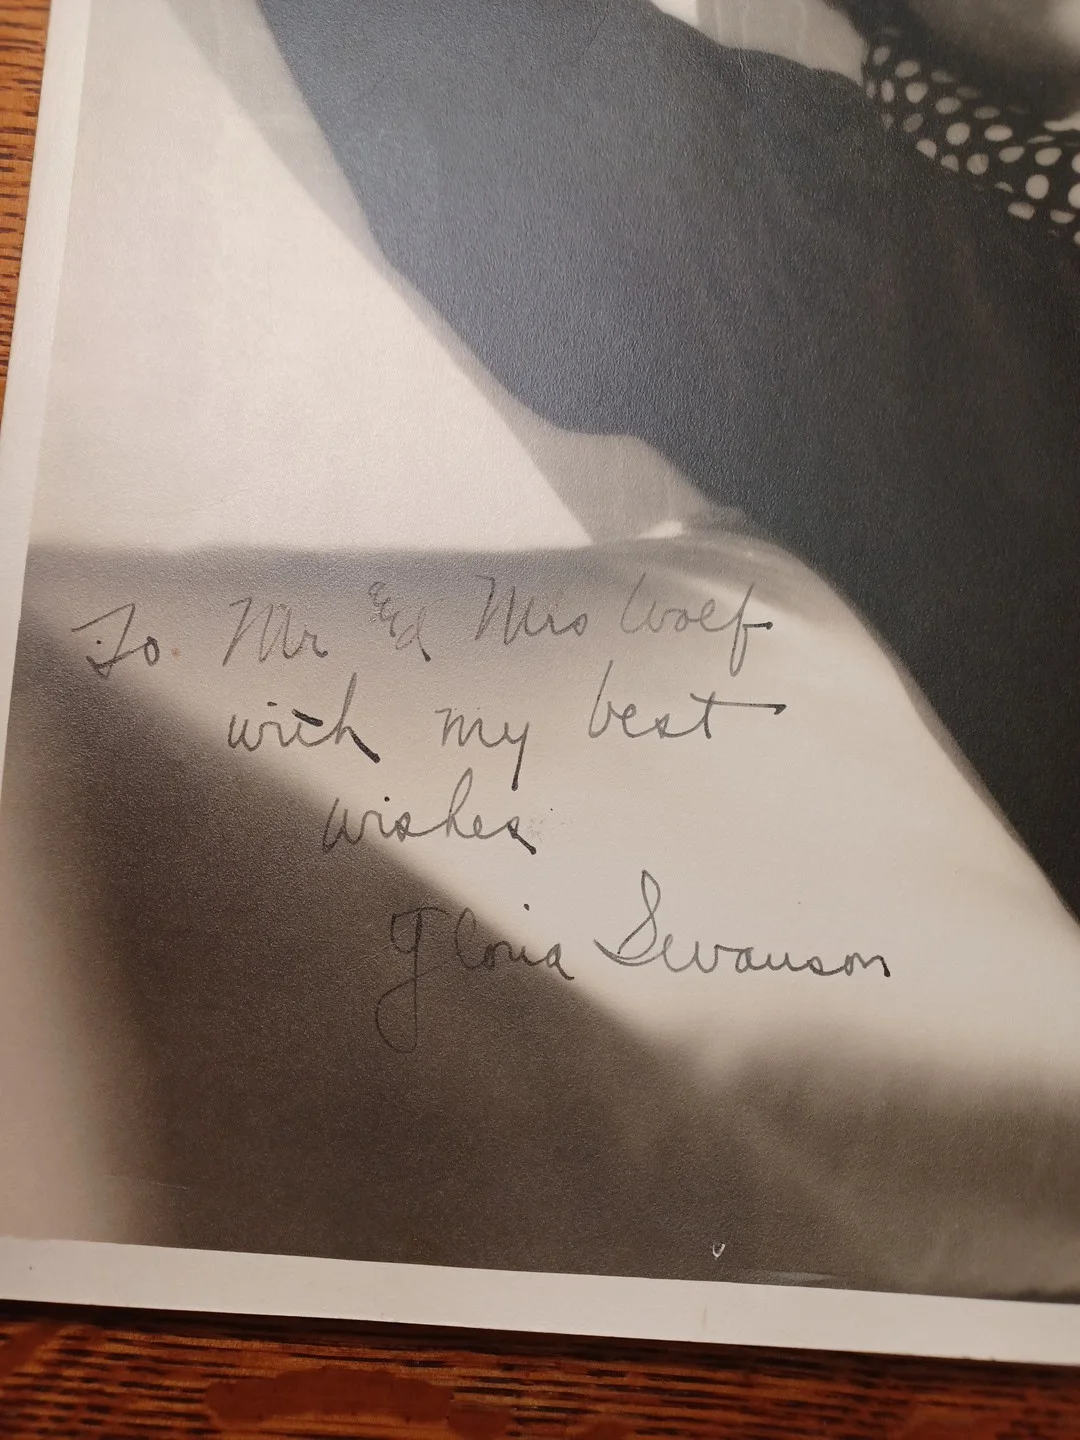 To Mr Ed Mrs Wolf
with my best
wishes
Gloria Swanson